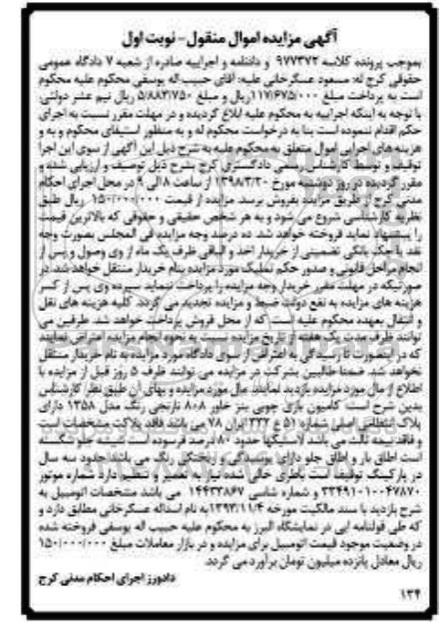 آگهی مزایده اموال منقول - نوبت اول
بموجب پرونده کلاسه ۹۷۷۳۷۲ و دادنامه و اجراییه صادره از شعبه ۷ دادگاه عمومی
حقوقی کرج له: مسعود عسگرخانی علیه: آقای حبیب اله یوسفی محکوم علیه محکوم
است به پرداخت مبلغ ۱۱۷/۶۷۵/۰۰۰ ریال و مبلغ ۵/۸۸۳/۷۵۰ ریال نیم عشر دولتی.
با توجه به اینکه اجراییه به محکوم علیه ابلاغ گردیده و در مهلت مقرر نسبت به اجرای
حکم اقدام ننموده است بنا به درخواست محکوم له و به منظور استیفای محکوم و به و
هزینه های اجرایی اموال متعلق به محکوم علیه به شرح ذیل این آگهی از سوی این اجرا
توقیف و توسط کارشناس رسمی دادگستری کرج بشرح ذیل توصیف و ارزیابی شده و
مقرر گردیده در روز دوشنبه مورخ ۱۳۹۸/۳/۲۰ از ساعت ۸ الی ۹ در محل اجرای احکام
مدنی کرج از طریق مزایده بفروش برسد. مزایده از قیمت ۱۵۰/۰۰۰/۰۰۰ ریال طبق
نظریه کارشناسی شروع می شود و به هر شخص حقیقی و حقوقی که بالاترین قیمت
را پیشنهاد نماید فروخته خواهد شد. ده درصد وجه مزایده فی المجلس بصورت وجه
نقد یا چک بانکی تضمینی از خریدار اخذ و الباقی ظرف یک ماه از وی وصول و پس از
انجام مراحل قانونی و صدور حکم تملیک مورد مزایده بنام خریدار منتقل خواهد شد. در
صورتیکه در مهلت مقرر خریدار وجه مزایده را پرداخت ننماید سپرده وی پس از کسر
هزینه های مزایده به نفع دولت ضبط و مزایده تجدید می گردد. کلیه هزینه های نقل
و انتقال بعهده محکوم علیه است که از محل فروش پرداخت خواهد شد. طرفین می
توانند ظرف مدت یک هفته از تاریخ مزایده نسبت به نحوه انجام مزایده اعتراض نمایند
که در اینصورت تا رسیدگی به اعتراض از سوی دادگاه مورد مزایده به نام خریدار منتقل
نخواهد شد. ضمنا طالبین بشرکت در مزایده می توانند ظرف ۵ روز قبل از مزایده با
اطلاع از مال مورد مزایده بازدید نمایند. مال مورد مزایده و بهای آن طبق نظر کارشناس
بدین شرح است: کامیون باری چوبی بنز خاور ۸۰۸ نارنجی رنگ مدل ۱۳۵۸ دارای
پلاک انتظامی اصلی شماره ۵۱ ع ۲۲۲ ایران ۷۸ می باشد فاقد پلاکت مشخصات است
و فاقد بیمه ثالث می باشد لاستیکها حدود ۸۰ درصد فرسوده است شیشه جلو شکسته
است اطاق بار و اطاق جلو دارای پوسیدگی و ریختگی رنگ می باشد حدود سه سال
در پارکینگ توقیف است باطری خالی شده نیاز به تعمیر و تنظیم دارد شماره موتور
۳۳۴۹۱۰۱۰۰۴۷۸۷۰ و شماره شاسی ۱۴۴۳۳۸۶۷ می باشد مشخصات اتومبیل به
شرح بازدید با سند مالکیت مورخه ۱۳۹۳/۱۱/۴ به نام اسداله عسکرخانی مطابق دارد و
که طی قولنامه ایی در نمایشگاه البرز به محکوم علیه حبیب اله یوسفی فروخته شده
در وضعیت موجود قیمت اتومبیل برای مزایده و در بازار معاملات مبلغ ۱۵۰/۰۰۰/۰۰۰
ریال معادل پانزده میلیون تومان برآورد می گردد.
دادورز اجرای احکام مدنی کرج
۱۳۴